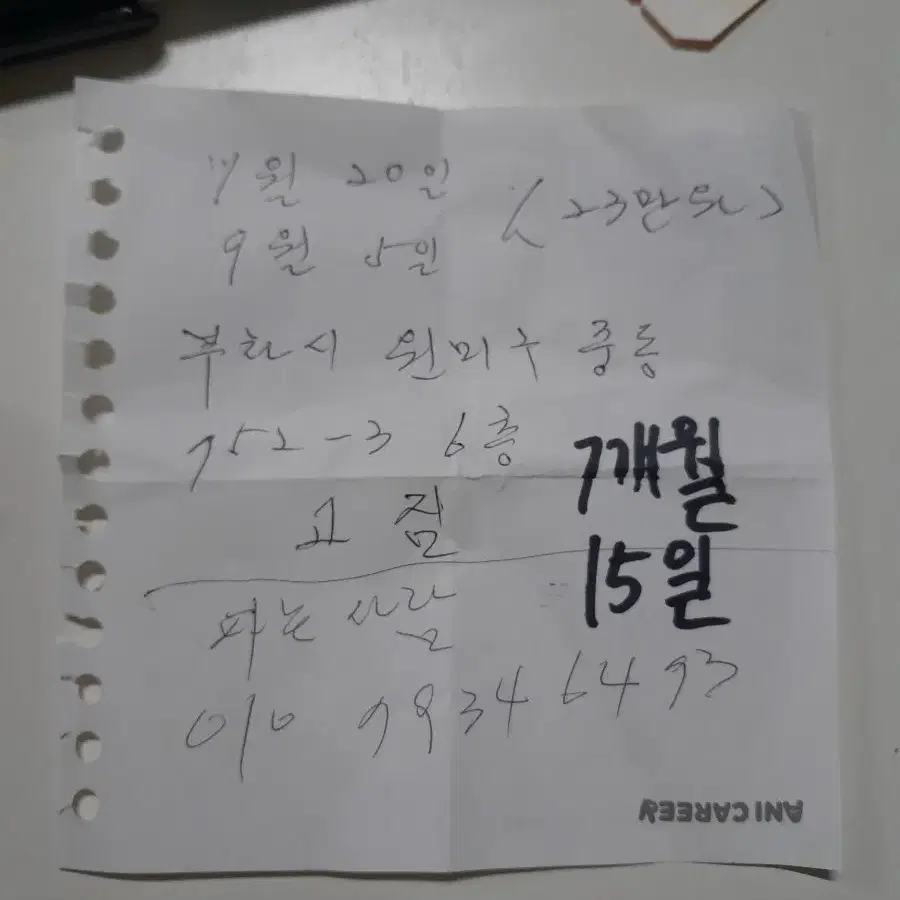 7월 20일
9월 5일
(23만원)
부천시 원미구 중동
752-3 6층
고 짐
7개월
15일
파는 사람
010 9934 6493
ANICAREEY